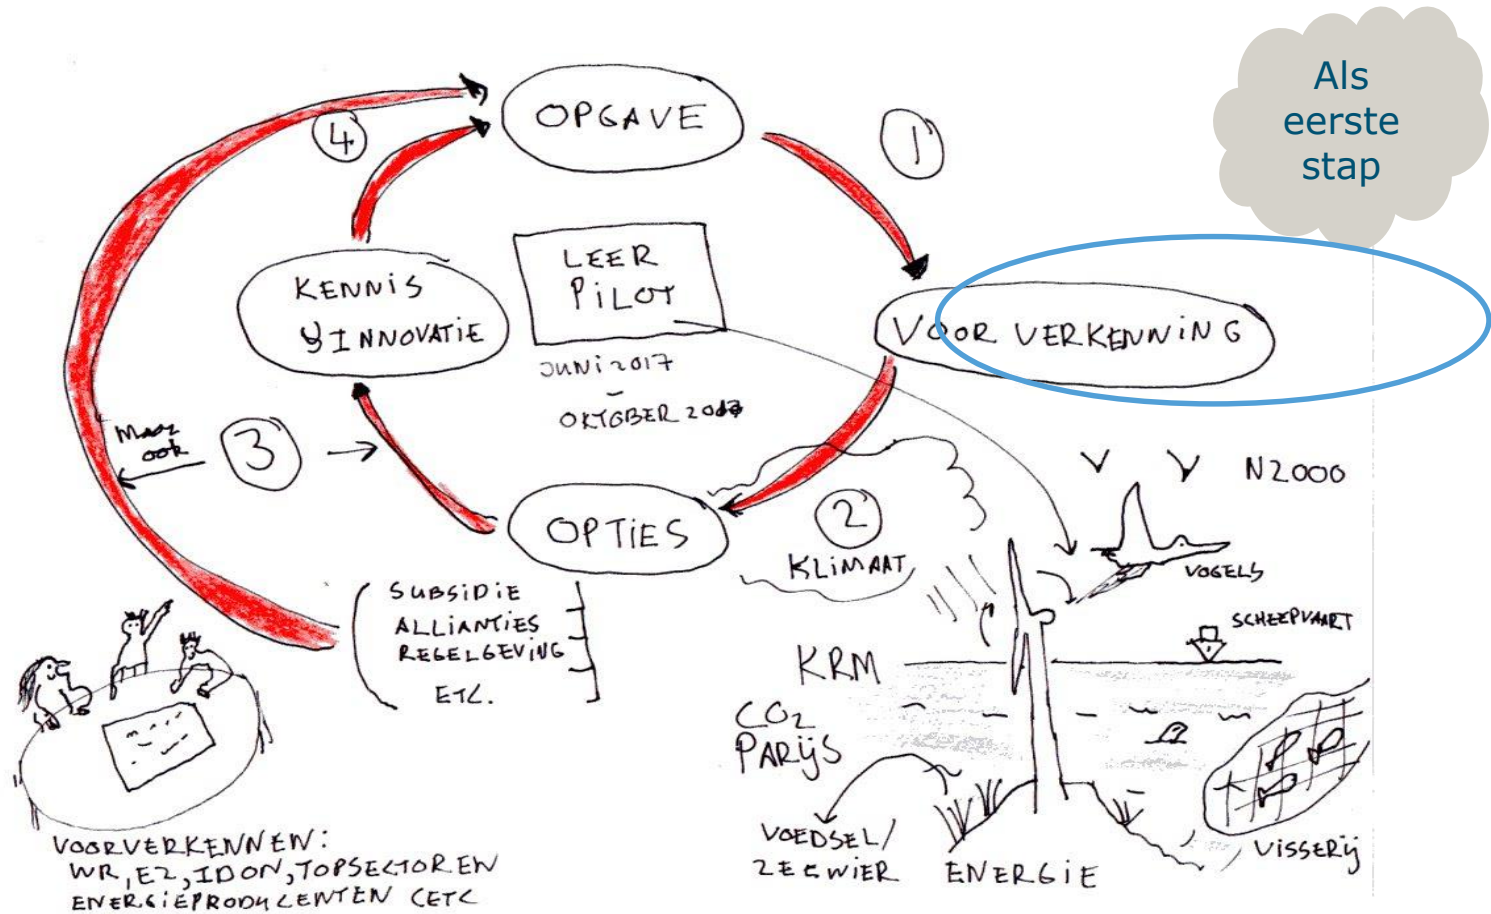 Als
eerste
stap
OPGAVE
1
4
LEER
PILOT
JUNI 2017
–
OKTOBER 2017
KENNIS
& INNOVATIE
VOORVERKENNING
Maar
ook
3
OPTIES
2
KLIMAAT
N2000
VOGELS
SCHEEPVAART
SUBSIDIE
ALLIANTIES
REGELGEVING
ETC.
KRM
CO2
PARIJS
VOEDSEL/
ZEEWIER
ENERGIE
VISSERIJ
VOORVERKENNEN:
WR, EZ, IDON, TOPSECTOREN
ENERGIEPRODUCENTEN (ETC